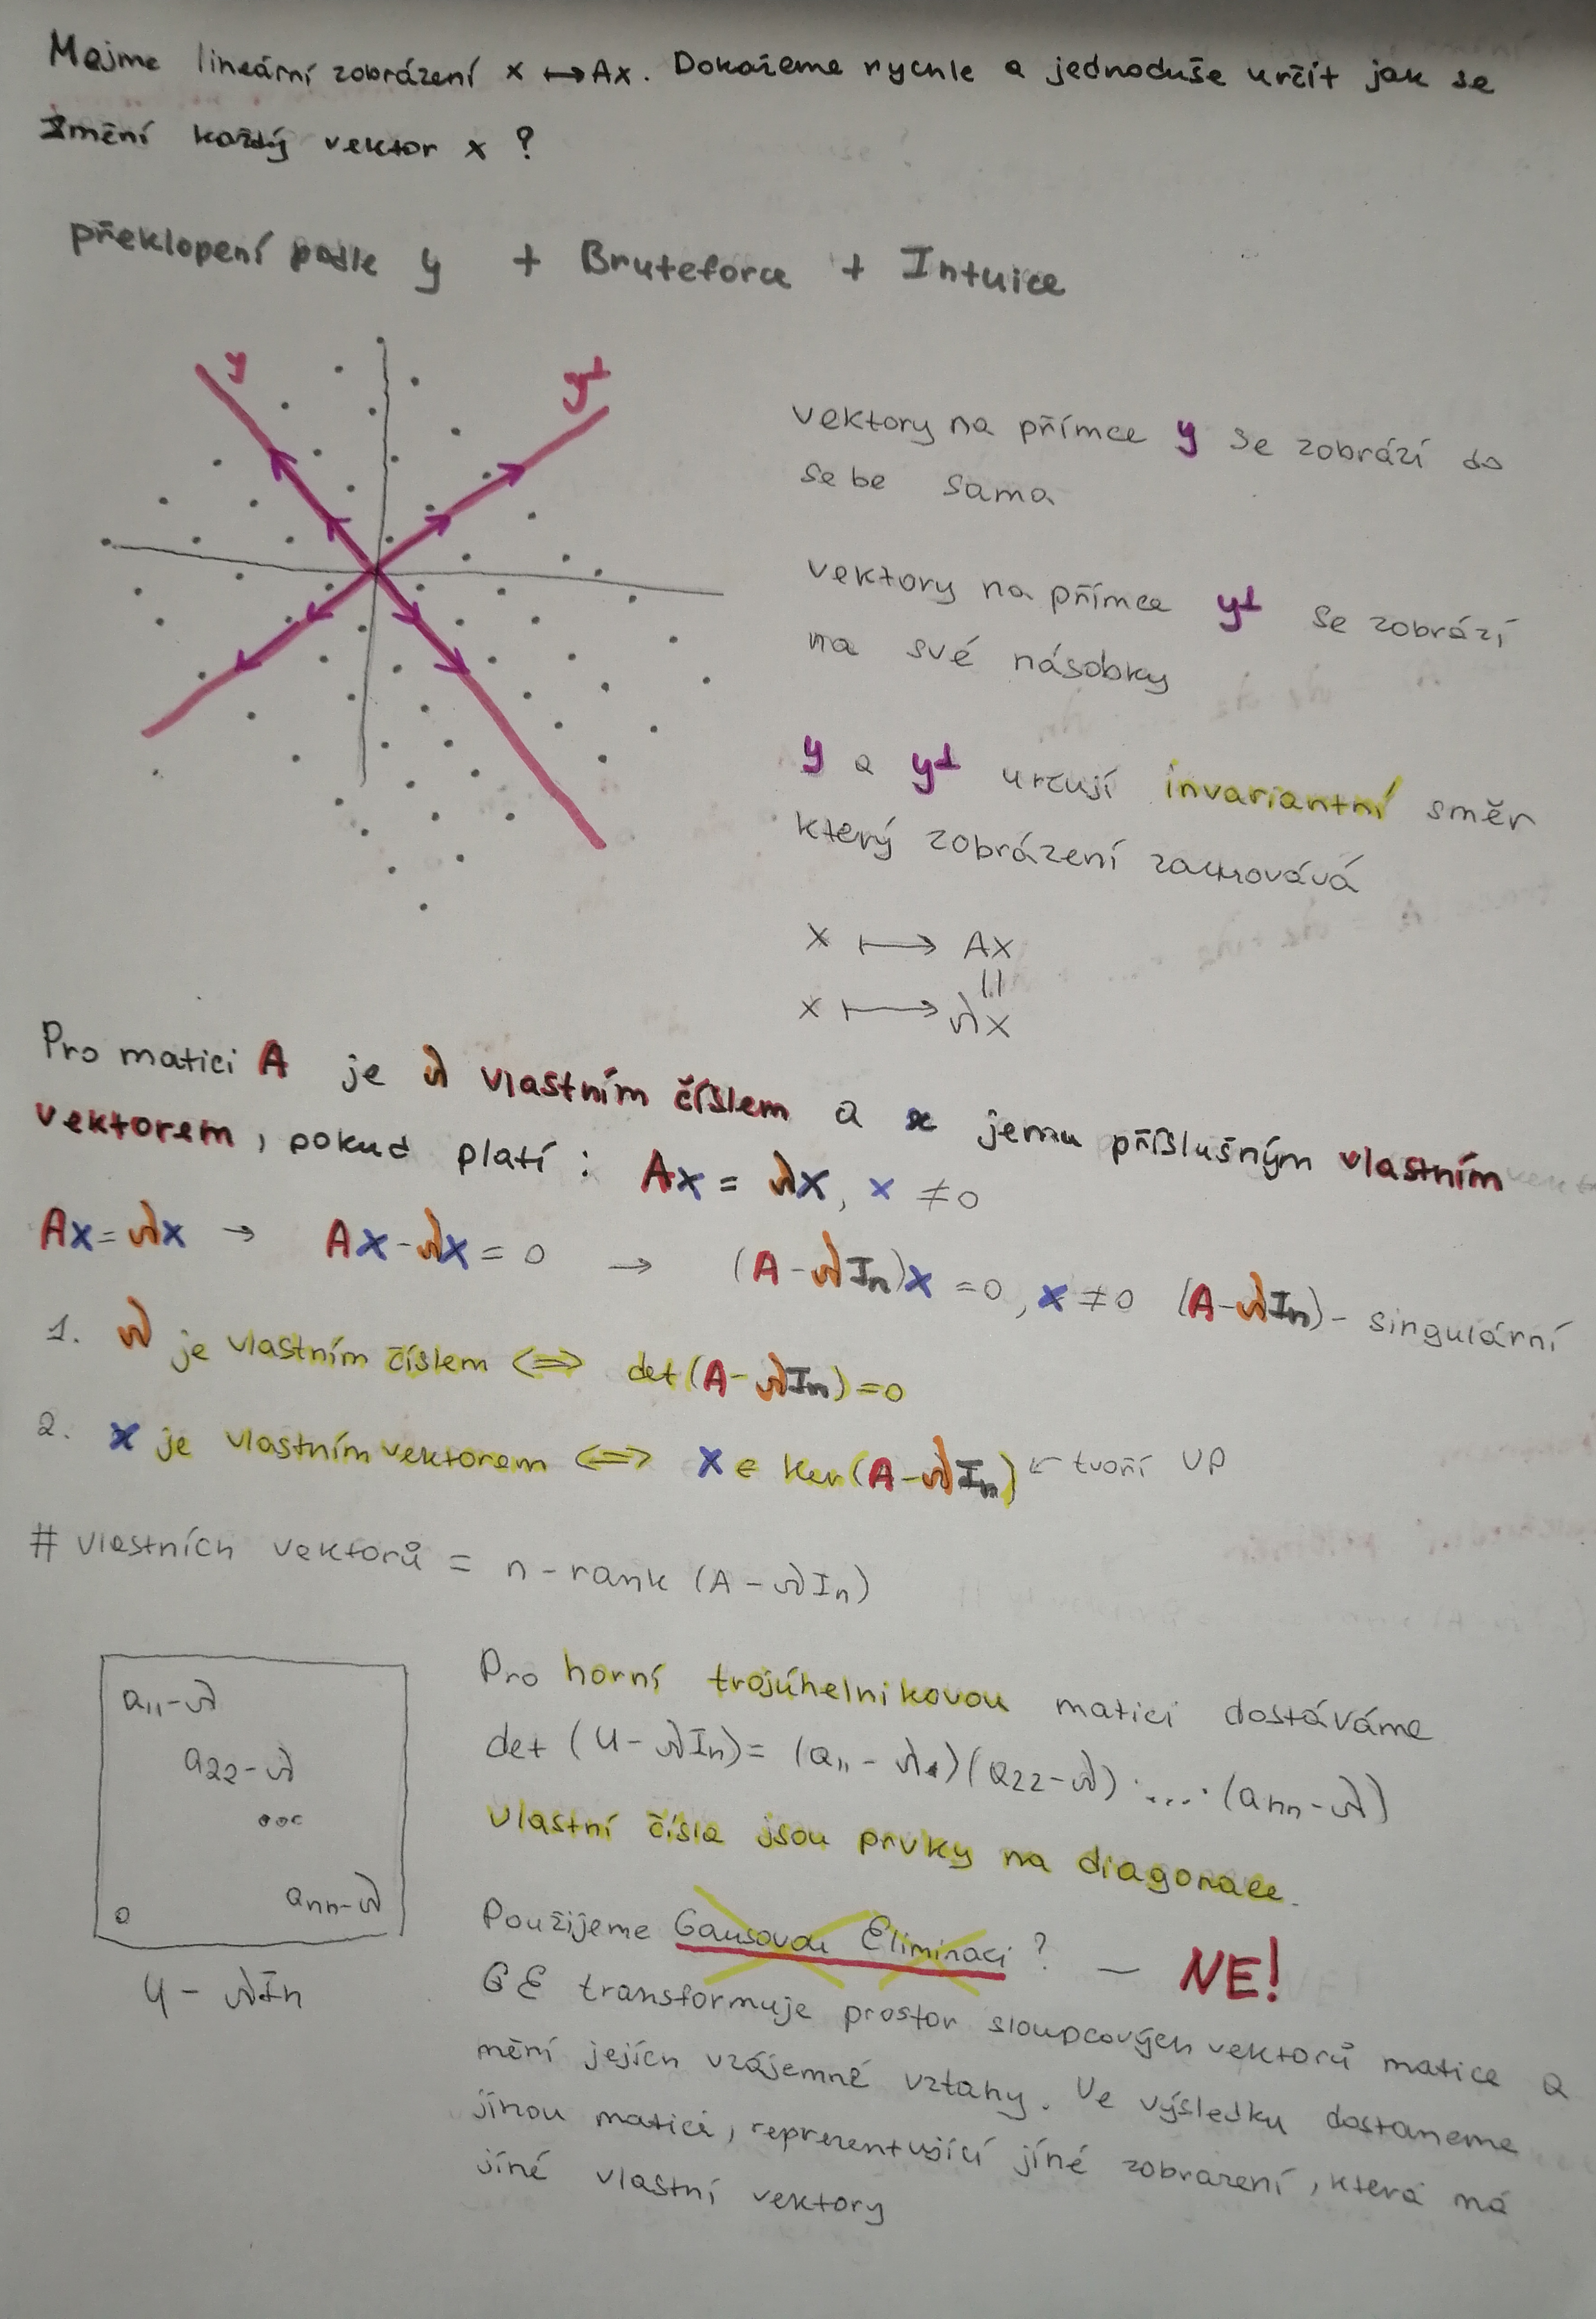 Mejme lineární zobrázení x ↦ Ax. Dokažeme rychle a jednoduše určít jak se
změní každý vektor x ?
překlopení podle y + Bruteforce + Intuice
y
y⊥
vektory na přímce y se zobrází do
sebe sama
vektory na přímce y⊥ se zobrází
na své násobky
y a y⊥ určují invariantní směr
který zobrázení zachovává
x ↦ Ax
||
x ↦ λx
Pro matici A je λ vlastním číslem a x jemu příslušným vlastním
vektorem, pokud platí : Ax = λx, x ≠ 0
Ax = λx → Ax - λx = 0 → (A - λIn)x = 0, x ≠ 0 (A - λIn) - singulární
1. λ je vlastním číslem ⟺ det(A - λIn) = 0
2. x je vlastním vektorem ⟺ x ∈ ker(A - λIn) ← tvoří VP
# vlastních vektorů = n - rank (A - λIn)
a11 - λ
a22 - λ
ooo
ann - λ
0
U - λIn
Pro horní trojúhelnikovou matici dostáváme
det (U - λIn) = (a11 - λ)(a22 - λ) · ... · (ann - λ)
vlastní čísla jsou prvky na diagonale.
Použijeme Gausovou Eliminaci ? — NE!
GE transformuje prostor sloupcových vektorů matice a
mění jejích vzájemné vztahy. Ve výsledku dostaneme
jinou matici, reprezentující jíné zobrazení, která má
jíné vlastní vektory